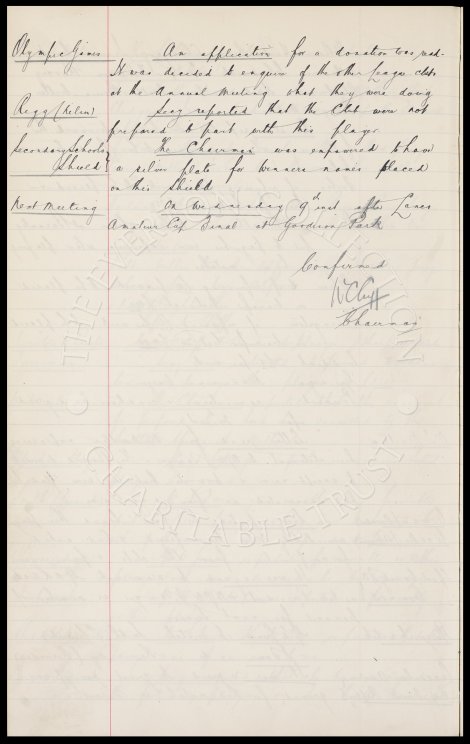 Olympic Games An application for a donation was made
It was decided to enquire of the other League clubs
at the Annual Meeting what they were doing
Rigg (Nelson) Secy reported that the Club were not
prepared to part with this player.
Secondary Schools The Chairman was empowered to have
Shield } a silver plate for winners names placed
on this shield
Next Meeting On Wednesday 9th inst after Lancs
Amateur Cup Final at Goodison Park
Confirmed
W C Cuff
Chairman
THE EVERTON COLLECTION
CHARITABLE TRUST